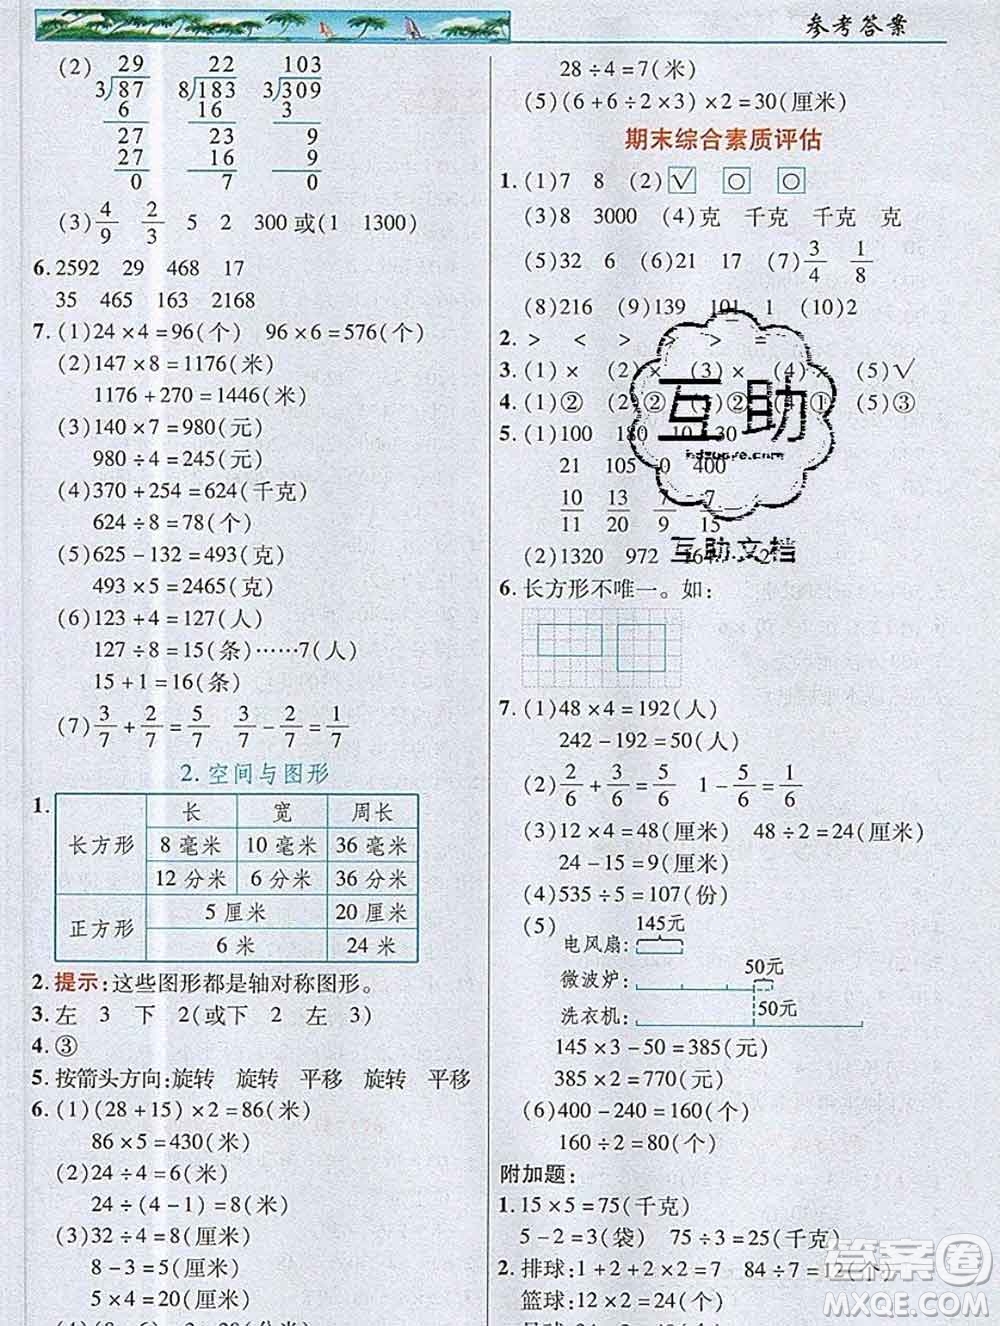 参考答案
(2) 29 22 103
3)87 8)183 3)309
6 16 3
27 23 9
27 16 9
0 7 0
(3) 4/9 2/3 5 2 300 或(1 1300)
6. 2592 29 468 17
35 465 163 2168
7. (1)24×4=96(个) 96×6=576(个)
(2)147×8=1176(米)
1176+270=1446(米)
(3)140×7=980(元)
980÷4=245(元)
(4)370+254=624(千克)
624÷8=78(个)
(5)625-132=493(克)
493×5=2465(克)
(6)123+4=127(人)
127÷8=15(条)……7(人)
15+1=16(条)
(7) 3/7+2/7=5/7 3/7-2/7=1/7
2. 空间与图形
1. 长 宽 周长
长方形 8 毫米 10 毫米 36 毫米
12 分米 6 分米 36 分米
正方形 5 厘米 20 厘米
6 米 24 米
2. 提示:这些图形都是轴对称图形。
3. 左 3 下 2(或下 2 左 3)
4. ③
5. 按箭头方向:旋转 旋转 平移 旋转 平移
6. (1)(28+15)×2=86(米)
86×5=430(米)
(2)24÷4=6(米)
24÷(4-1)=8(米)
(3)32÷4=8(厘米)
8-3=5(厘米)
5×4=20(厘米)
28÷4=7(米)
(5)(6+6÷2×3)×2=30(厘米)
期末综合素质评估
1. (1)7 8 (2)√ ○ ○
(3)8 3000 (4)克 千克 千克 克
(5)32 6 (6)21 17 (7) 3/4 1/8
(8)216 (9)139 101 1 (10)2
2. > < > > > =
3. (1)× (2)× (3)× (4)× (5)√
4. (1)② (2)② (3)② (4)① (5)③
5. (1)100 180 10 30
21 105 0 400
10/11 13/20 7/9 7/15
(2)1320 972
6. 长方形不唯一。如:
7. (1)48×4=192(人)
242-192=50(人)
(2) 2/6+3/6=5/6 1-5/6=1/6
(3)12×4=48(厘米) 48÷2=24(厘米)
24-15=9(厘米)
(4)535÷5=107(份)
(5) 145元
电风扇:
50元
微波炉:
50元
洗衣机:
145×3-50=385(元)
385×2=770(元)
(6)400-240=160(个)
160÷2=80(个)
附加题:
1. 15×5=75(千克)
5-2=3(袋) 75÷3=25(千克)
2. 排球:1+2+2×2=7 84÷7=12(个)
篮球:12×2=24(个)
互助
hdzuoye.com
互助文档
答案圈
MXQE.COM